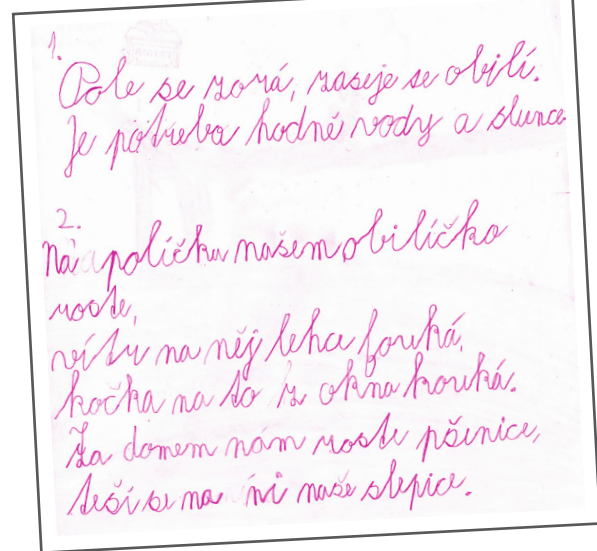 1.
Pole se zorá, zaseje se obilí.
Je potřeba hodně vody a slunce
2.
Na políčku našem obilíčko
roste,
vítr na něj lehce fouká,
kočka na to z okna kouká.
Za domem nám roste pšenice,
těší se na ni naše slepice.